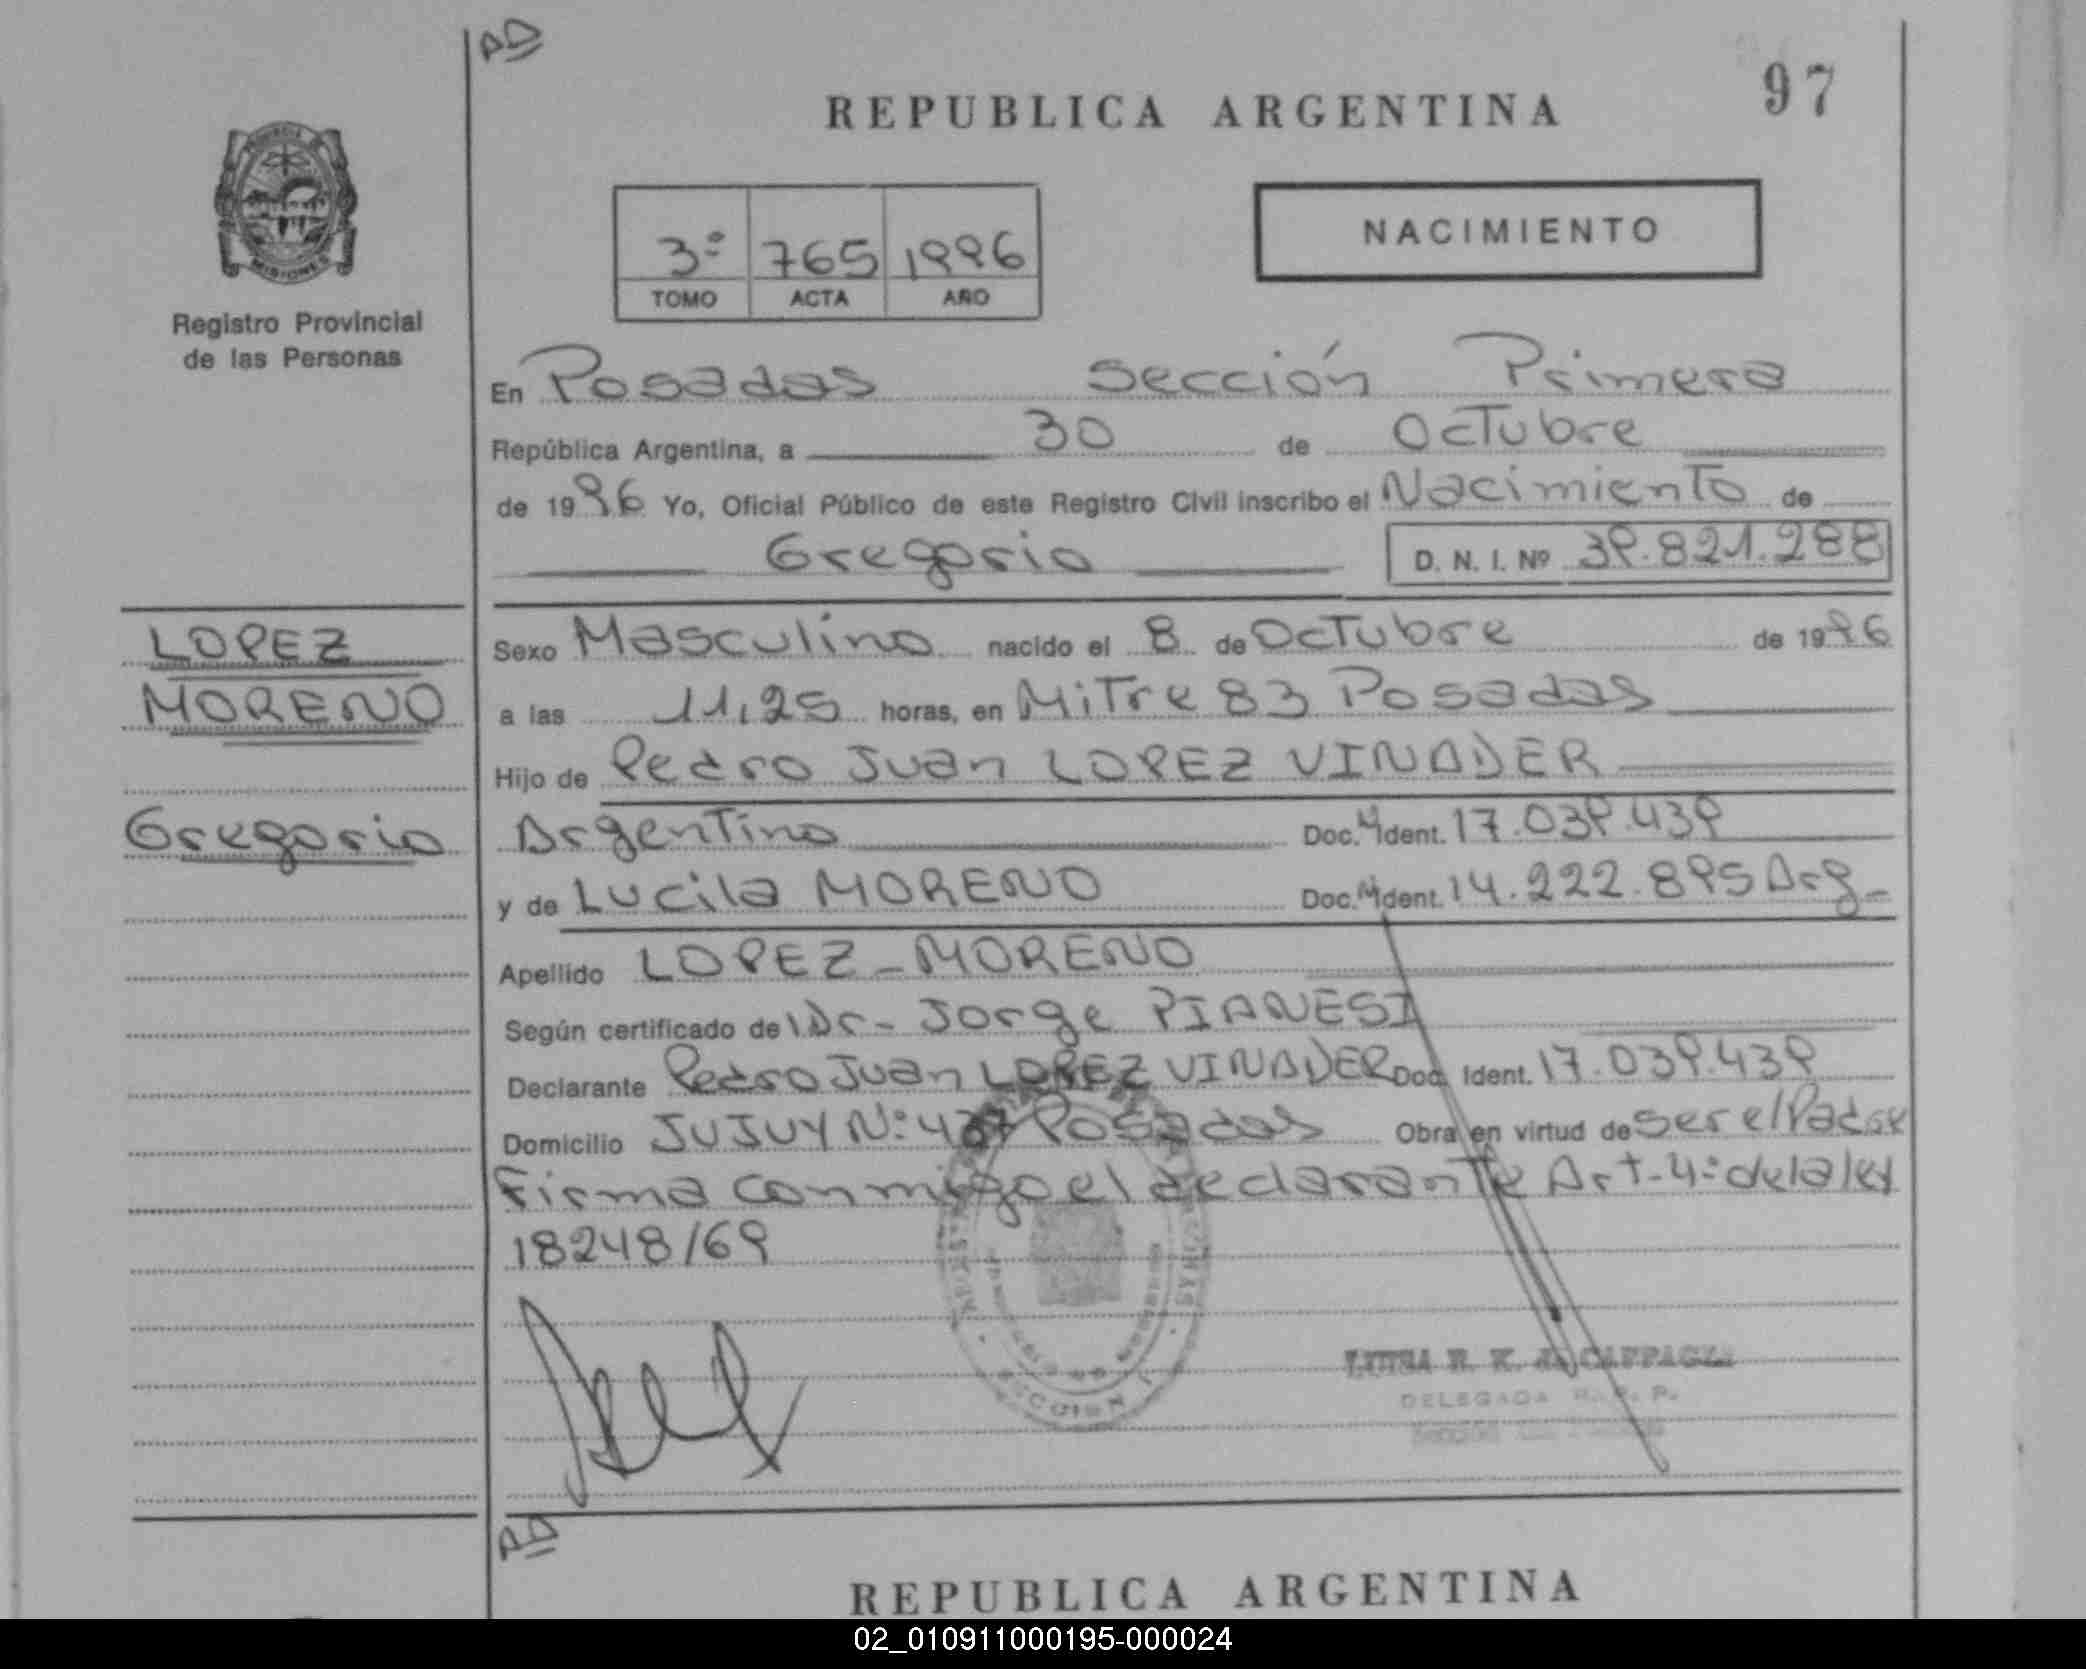 AD
REPUBLICA ARGENTINA
97
MISIONES
Registro Provincial
de las Personas
3º 765 1996
TOMO ACTA AÑO
NACIMIENTO
En Posadas Sección Primera
República Argentina, a 30 de Octubre
de 1996 Yo, Oficial Público de este Registro Civil inscribo el Nacimiento de
Gregorio D. N. I. Nº 39.821.288
LOPEZ
MORENO
Gregorio
Sexo Masculino nacido el 8 de Octubre de 1996
a las 11,25 horas, en Mitre 83 Posadas
Hijo de Pedro Juan LOPEZ VINADER
Argentino Doc. Ident. 17.039.439
y de Lucila MORENO Doc. Ident. 14.222.895 Arg-
Apellido LOPEZ-MORENO
Según certificado de Dr- Jorge PIANESI
Declarante Pedro Juan LOPEZ VINADER Doc. Ident. 17.039.439
Domicilio JUJUY Nº: Posadas Obra en virtud de ser el Padre
Firma conmigo el declarante Art-4º de la ley
18248/69
SECCION
DELEGADA R. P. P.
AD
REPUBLICA ARGENTINA
02_010911000195-000024